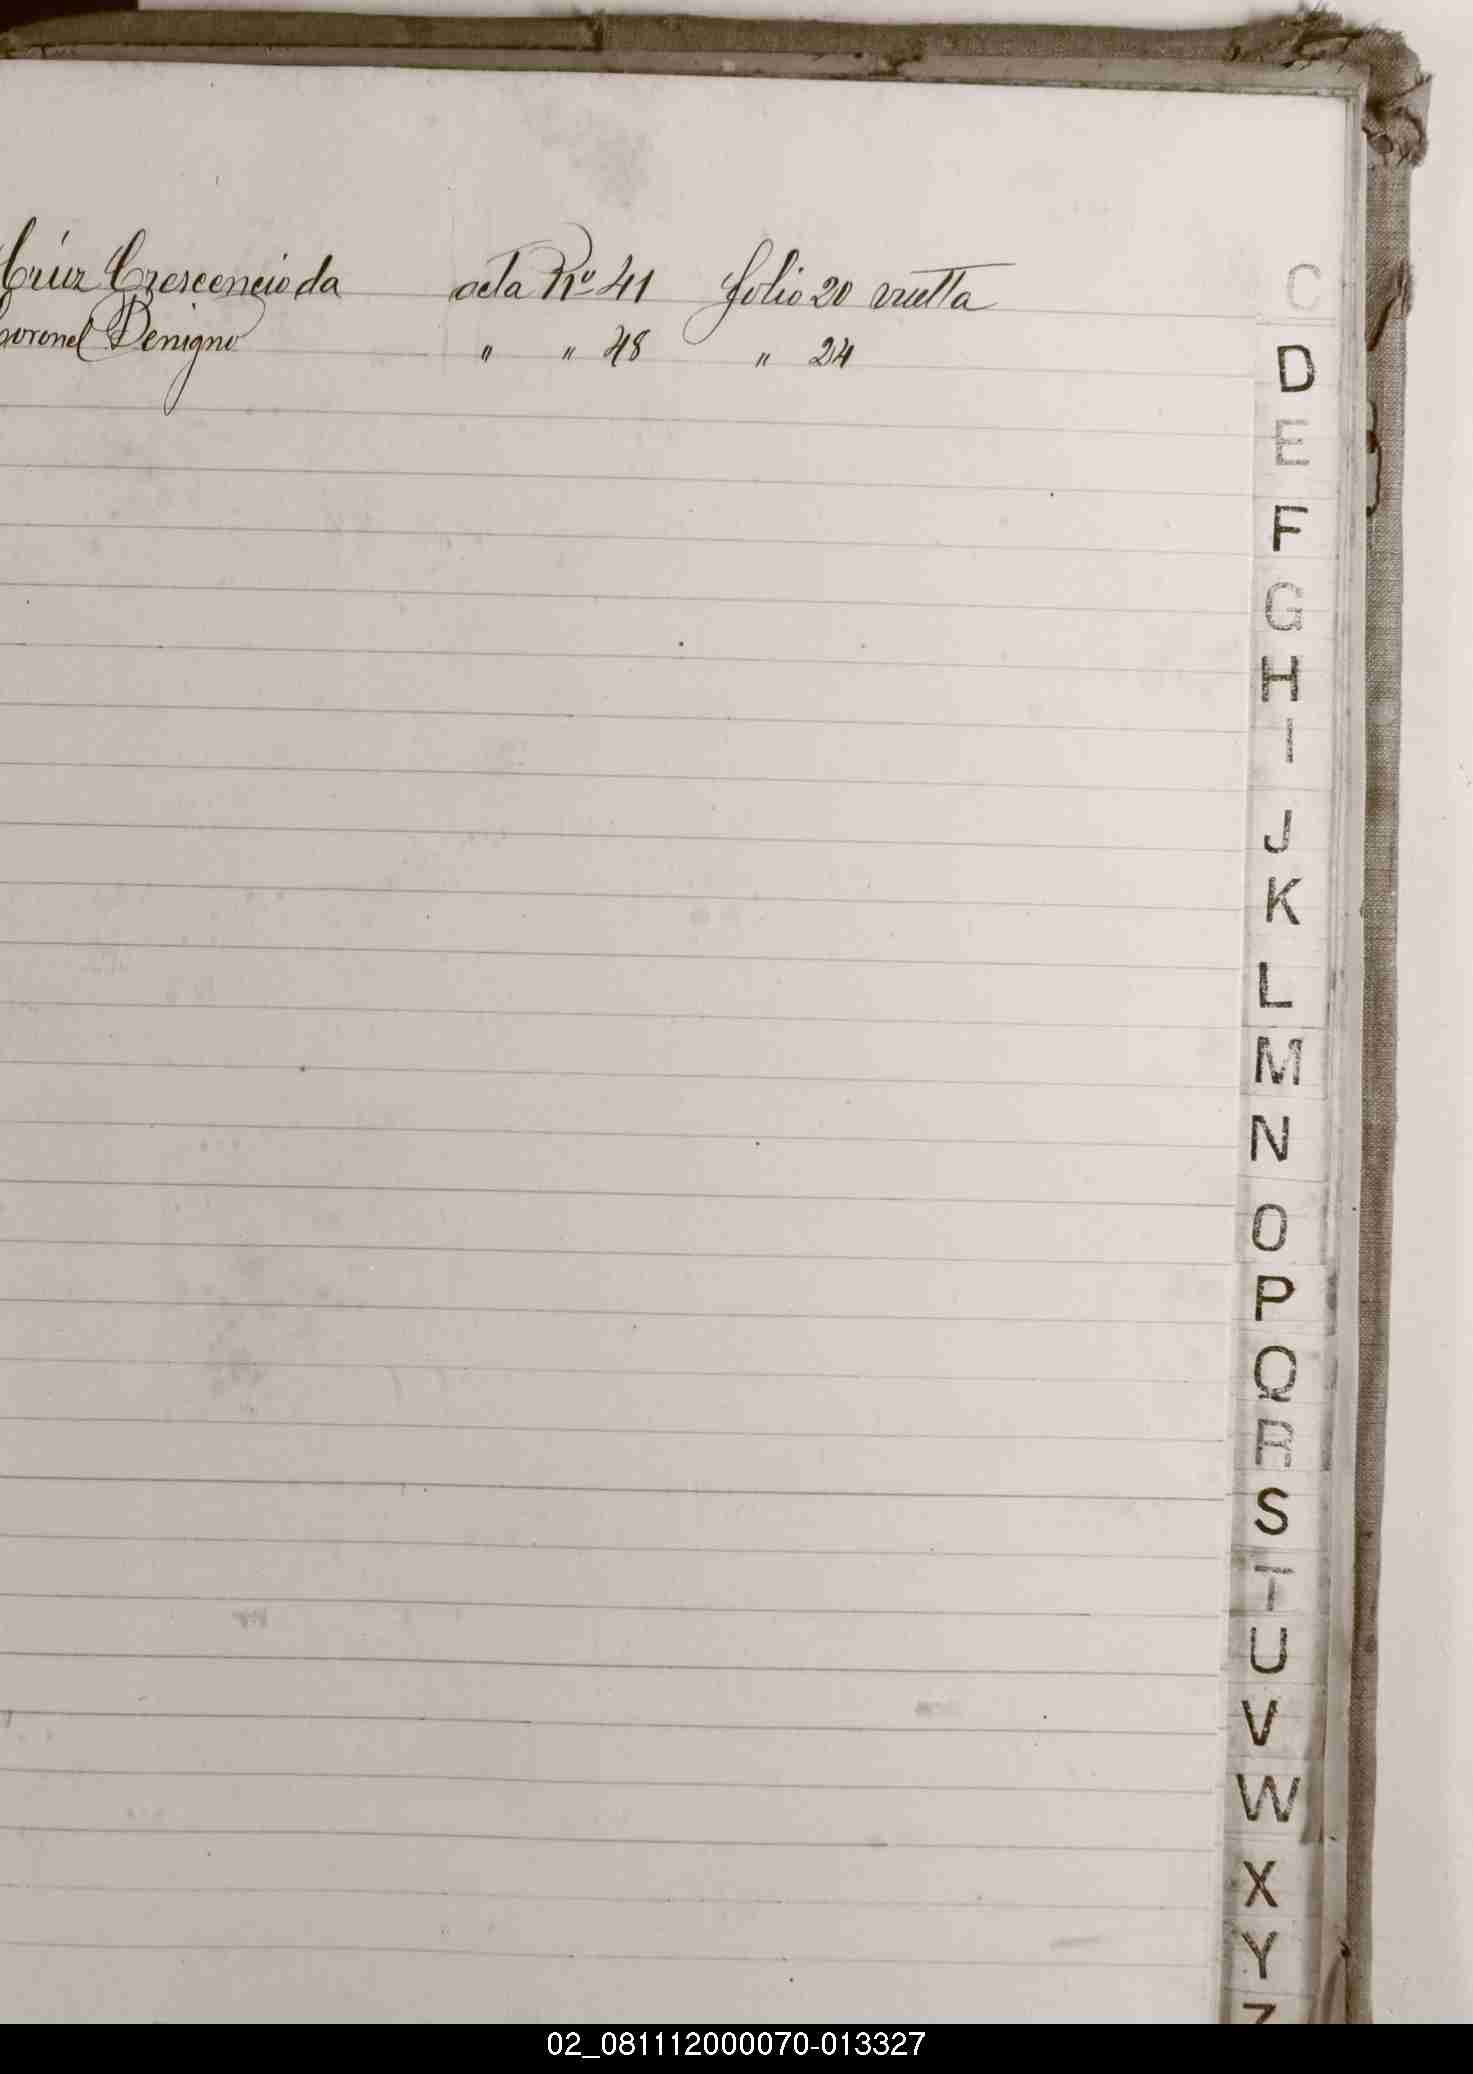 Cruz Crescencio da acta Nº 41 folio 20 vuelta
Coronel Benigno " " 48 " 24
C
D
E
F
G
H
I
J
K
L
M
N
O
P
Q
R
S
T
U
V
W
X
Y
Z
02_081112000070-013327